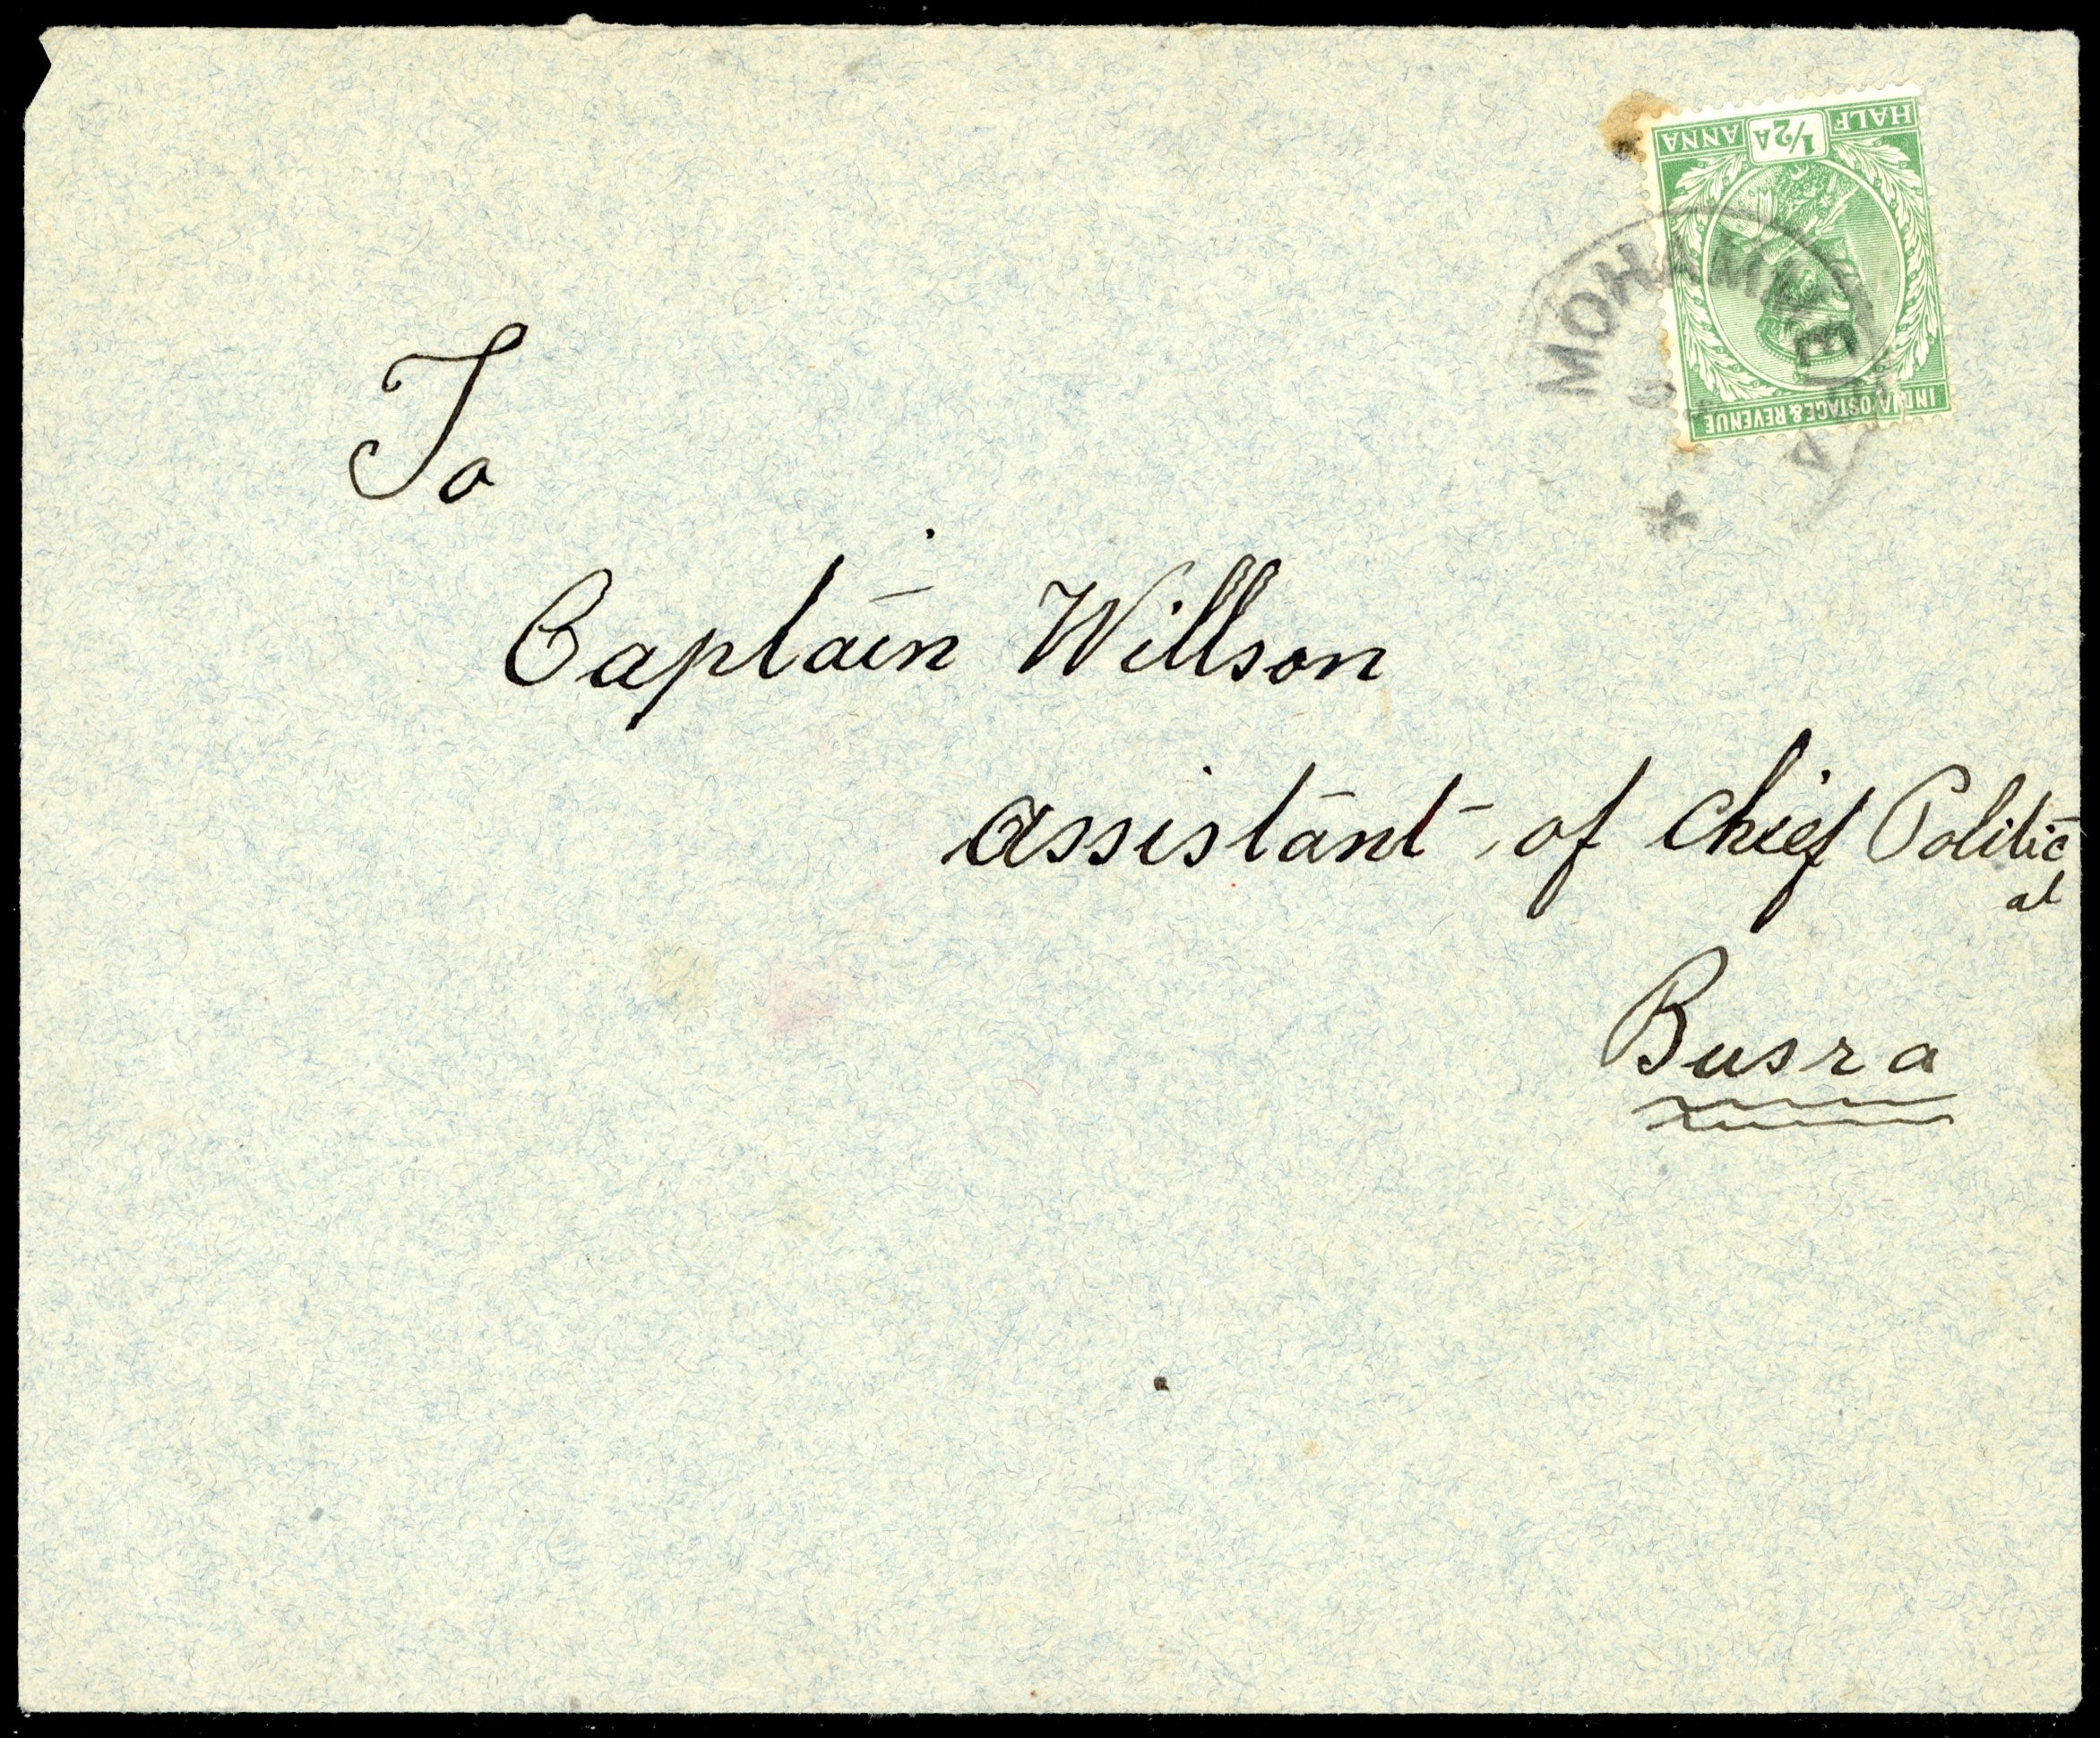 HALF ½A ANNA
INDIA POSTAGE & REVENUE
To
Captain Willson
assistant of Chief Politic
al
Busra